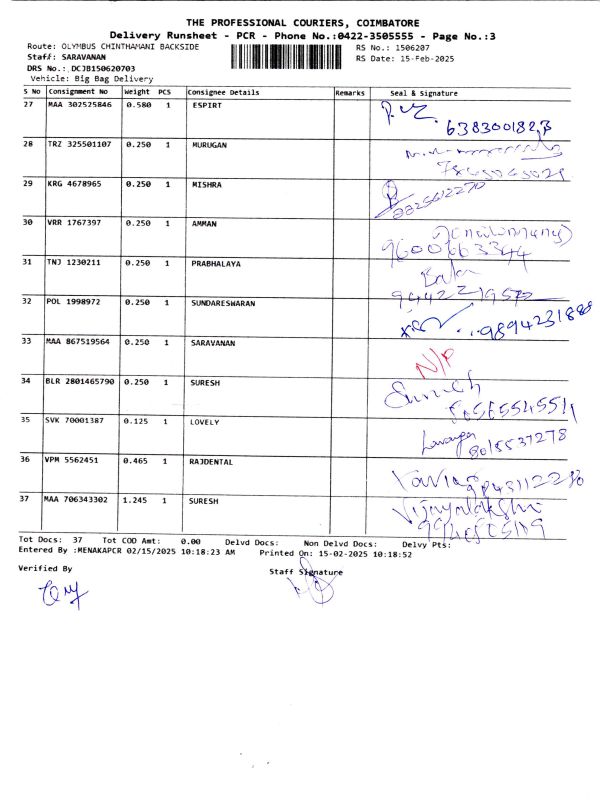 THE PROFESSIONAL COURIERS, COIMBATORE
Delivery Runsheet - PCR - Phone No.:0422-3505555 - Page No.:3
Route: OLYMBUS CHINTHAMANI BACKSIDE
RS No.: 1506207
Staff: SARAVANAN
RS Date: 15-Feb-2025
DRS No.: DCJB150620703
Vehicle: Big Bag Delivery
S No Consignment No Weight PCS Consignee Details Remarks Seal & Signature
27 MAA 302525846 0.580 1 ESPIRT
28 TRZ 325501107 0.250 1 MURUGAN
29 KRG 4678965 0.250 1 MISHRA
8825612270
30 VRR 1767397 0.250 1 AMMAN
9600663344
31 TNJ 1230211 0.250 1 PRABHALAYA
32 POL 1998972 0.250 1 SUNDARESWARAN
33 MAA 867519564 0.250 1 SARAVANAN
N/P
34 BLR 2801465790 0.250 1 SURESH
Suresh
35 SVK 70001387 0.125 1 LOVELY
8015537278
36 VPM 5562451 0.465 1 RAJDENTAL
37 MAA 706343302 1.245 1 SURESH
Vijayalakshmi
Tot Docs: 37 Tot COD Amt: 0.00 Delvd Docs: Non Delvd Docs: Delvy Pts:
Entered By :MENAKAPCR 02/15/2025 10:18:23 AM Printed On: 15-02-2025 10:18:52
Verified By
Staff Signature